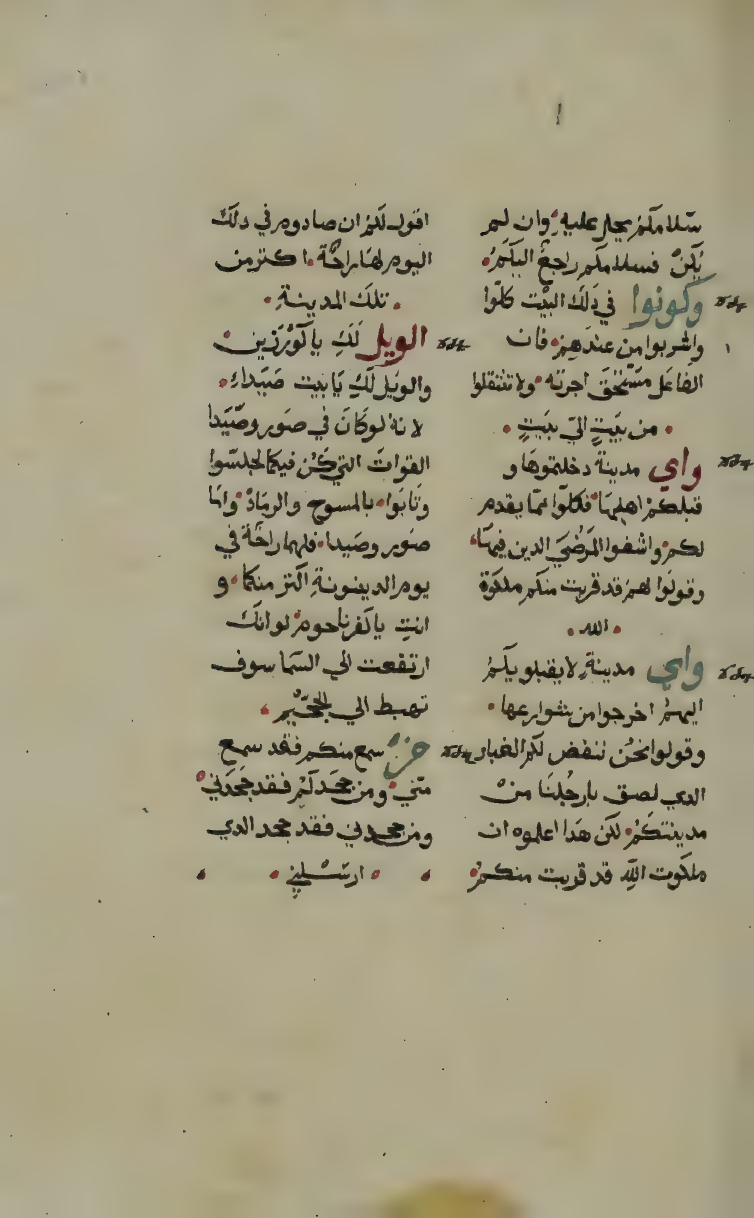 سلامكم يحل عليه وان لم
يكن فسلامكم راجع اليكم
وكونوا في ذلك البيت كلوا
واشربوا من عندهم فان
الفاعل مستحق اجرته ولا تنتقلوا
من بيت الي بيت
واي مدينة دخلتموها و
قبلكم اهلها فكلوا مما يقدم
لكم واشفوا المرضي الدين فيها
وقولوا لهم قد قربت منكم ملكوة
الله
واي مدينة لا يقبلو
اليهم اخرجوا من شوارعها
وقولوا نحن ننفض لكم الغبار
الدي لصق بارجلنا من
مدينتكم لكن هدا اعلموه ان
ملكوت الله قد قربت منكم
اقول لكم ان صادوم في دلك
اليوم لها راحة اكتر من
تلك المدينة
الويل لك يا كورزين
والويل لك يا بيت صيدا
لانه لو كان في صور وصيدا
القوات التي كن فيكما لجلسوا
وتابوا بالمسوح والرماد واما
صور وصيدا فلهما راحة في
يوم الدينونة اكتر منكما و
انت يا كفرناحوم لو انك
ارتفعت الي السما سوف
تهبط الي الجحيم
سمع منكم فقد سمع
مني ومن جحدكم فقد جحدني
ومن جحدني فقد جحد الدي
ارسلني